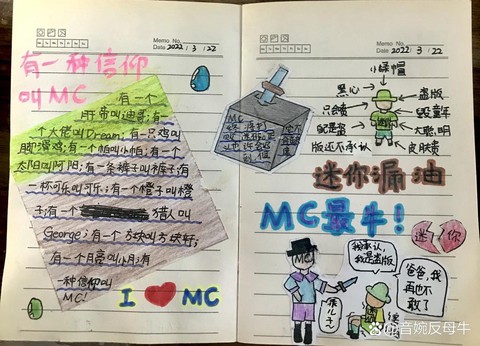 Memo No.
Date 2022 / 3 / 22
有一种信仰
叫MC
有一个
肝帝叫迪哥;有一
个大佬叫Dream;有一只鸡叫
脚滑鸡;有一个帕叫小帕;有一个
太阳叫阿阳;有一条裤子叫裤子;有
一杯可乐叫可乐;有一个橙子叫橙
子;有一个 猎人叫
George;有一个方块叫方块轩;
有一个月常叫小月;有
一种信仰叫
MC!
I MC
Memo No.
Date 2022 / 3 / 22
小绿帽
黑心
盗版
只会卖
毁童年
大聪明
版还不承认
皮肤贵
MC
迷你漏油
MC最牛!
迷你
MC
我承认,
我是盗版
爸爸,我
再也不
敢了
迷你
音婉反母牛